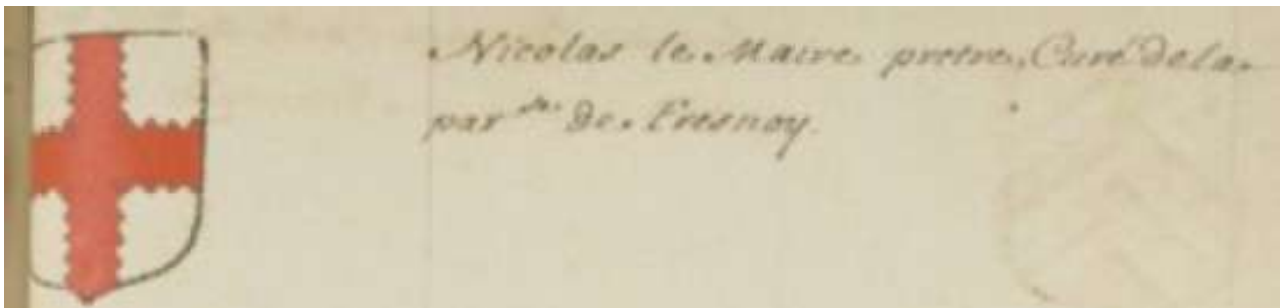 Nicolas le Maire pretre, Curé de la
par.sse de Fresnoy.